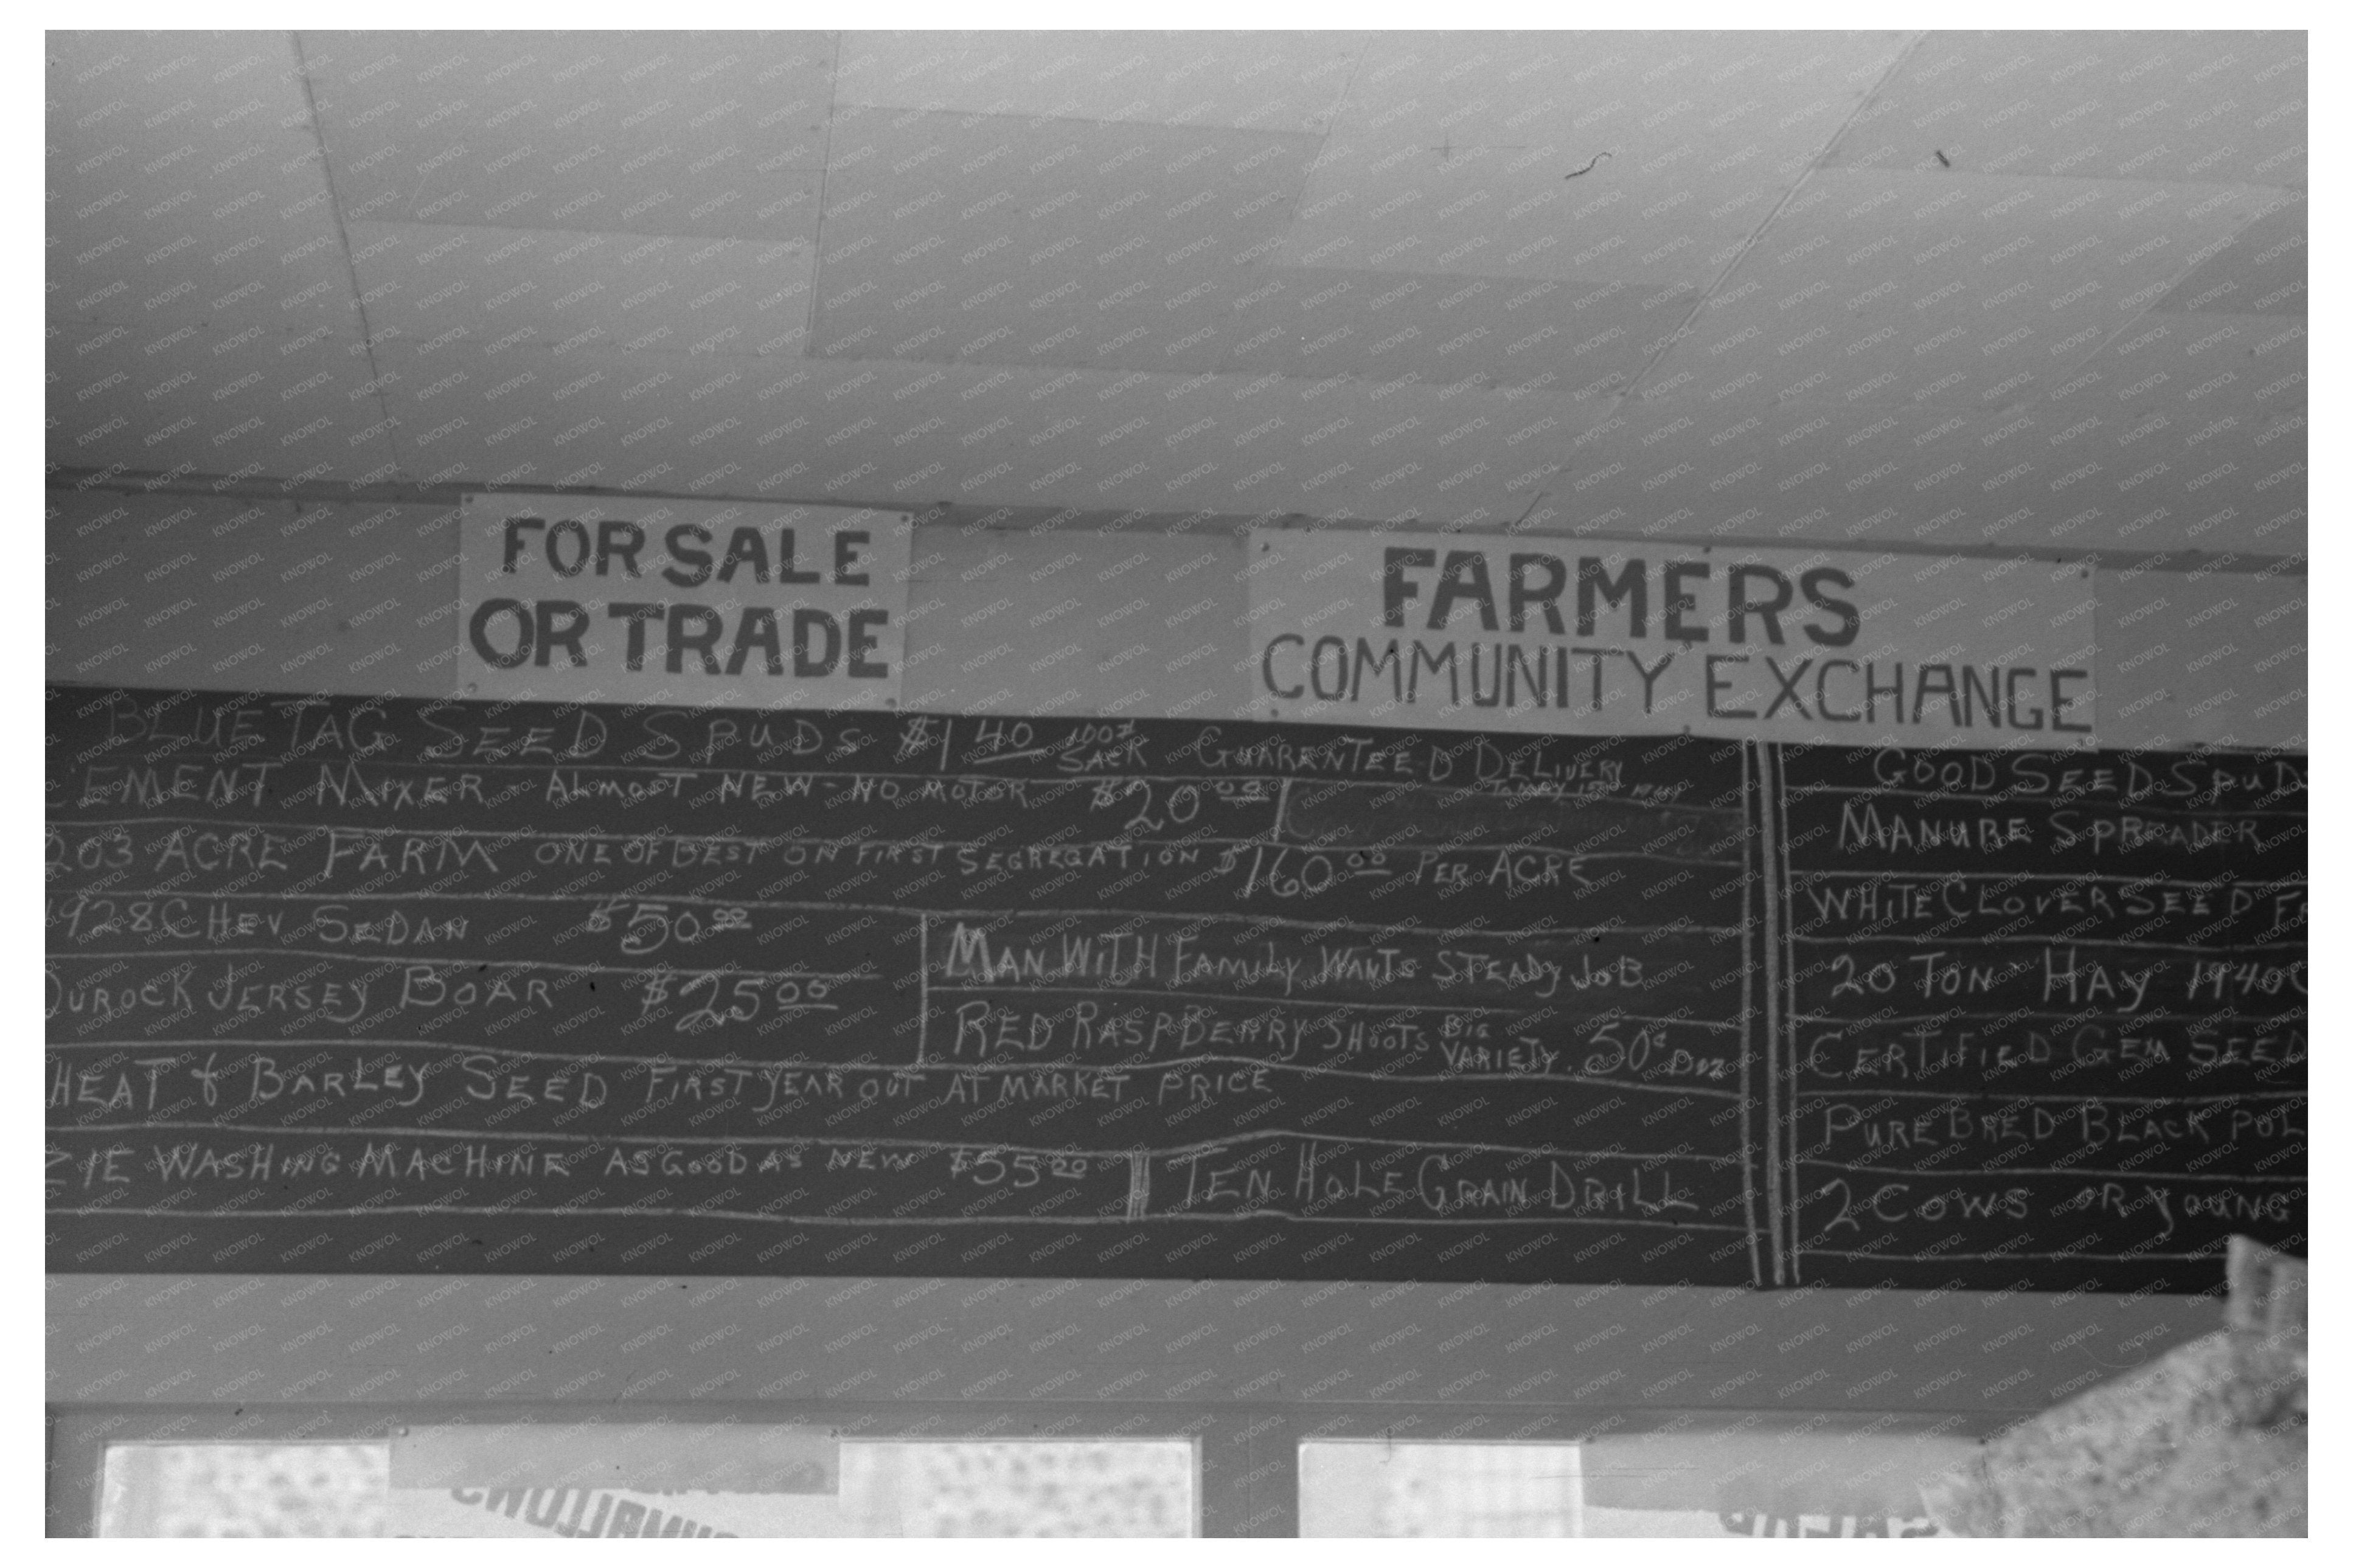 FOR SALE
OR TRADE
FARMERS
COMMUNITY EXCHANGE
BLUE TAG SEED SPUDS $1 40 100# SACK GUARENTEED DELIVERY
EMENT MIXER - ALMOST NEW - NO MOTOR $20 00
203 ACRE FARM ONE OF BEST ON FIRST SEGREGATION $160 00 PER ACRE
1928 CHEV SEDAN $50 00
DUROCK JERSEY BOAR $25 00
MAN WITH FAMILY WANTS STEADY JOB
RED RASPBERRY SHOOTS BIG VARIETY. 50¢ DOZ
HEAT & BARLEY SEED FIRST YEAR OUT AT MARKET PRICE
ZIE WASHING MACHINE AS GOOD AS NEW $55 00
TEN HOLE GRAIN DRILL
GOOD SEED SPUDS
MANURE SPREADER
WHITE CLOVER SEED F
20 TON HAY 1940
CERTIFIED GEM SEED
PURE BRED BLACK POL
2 COWS OR YOUNG
KNOWOL